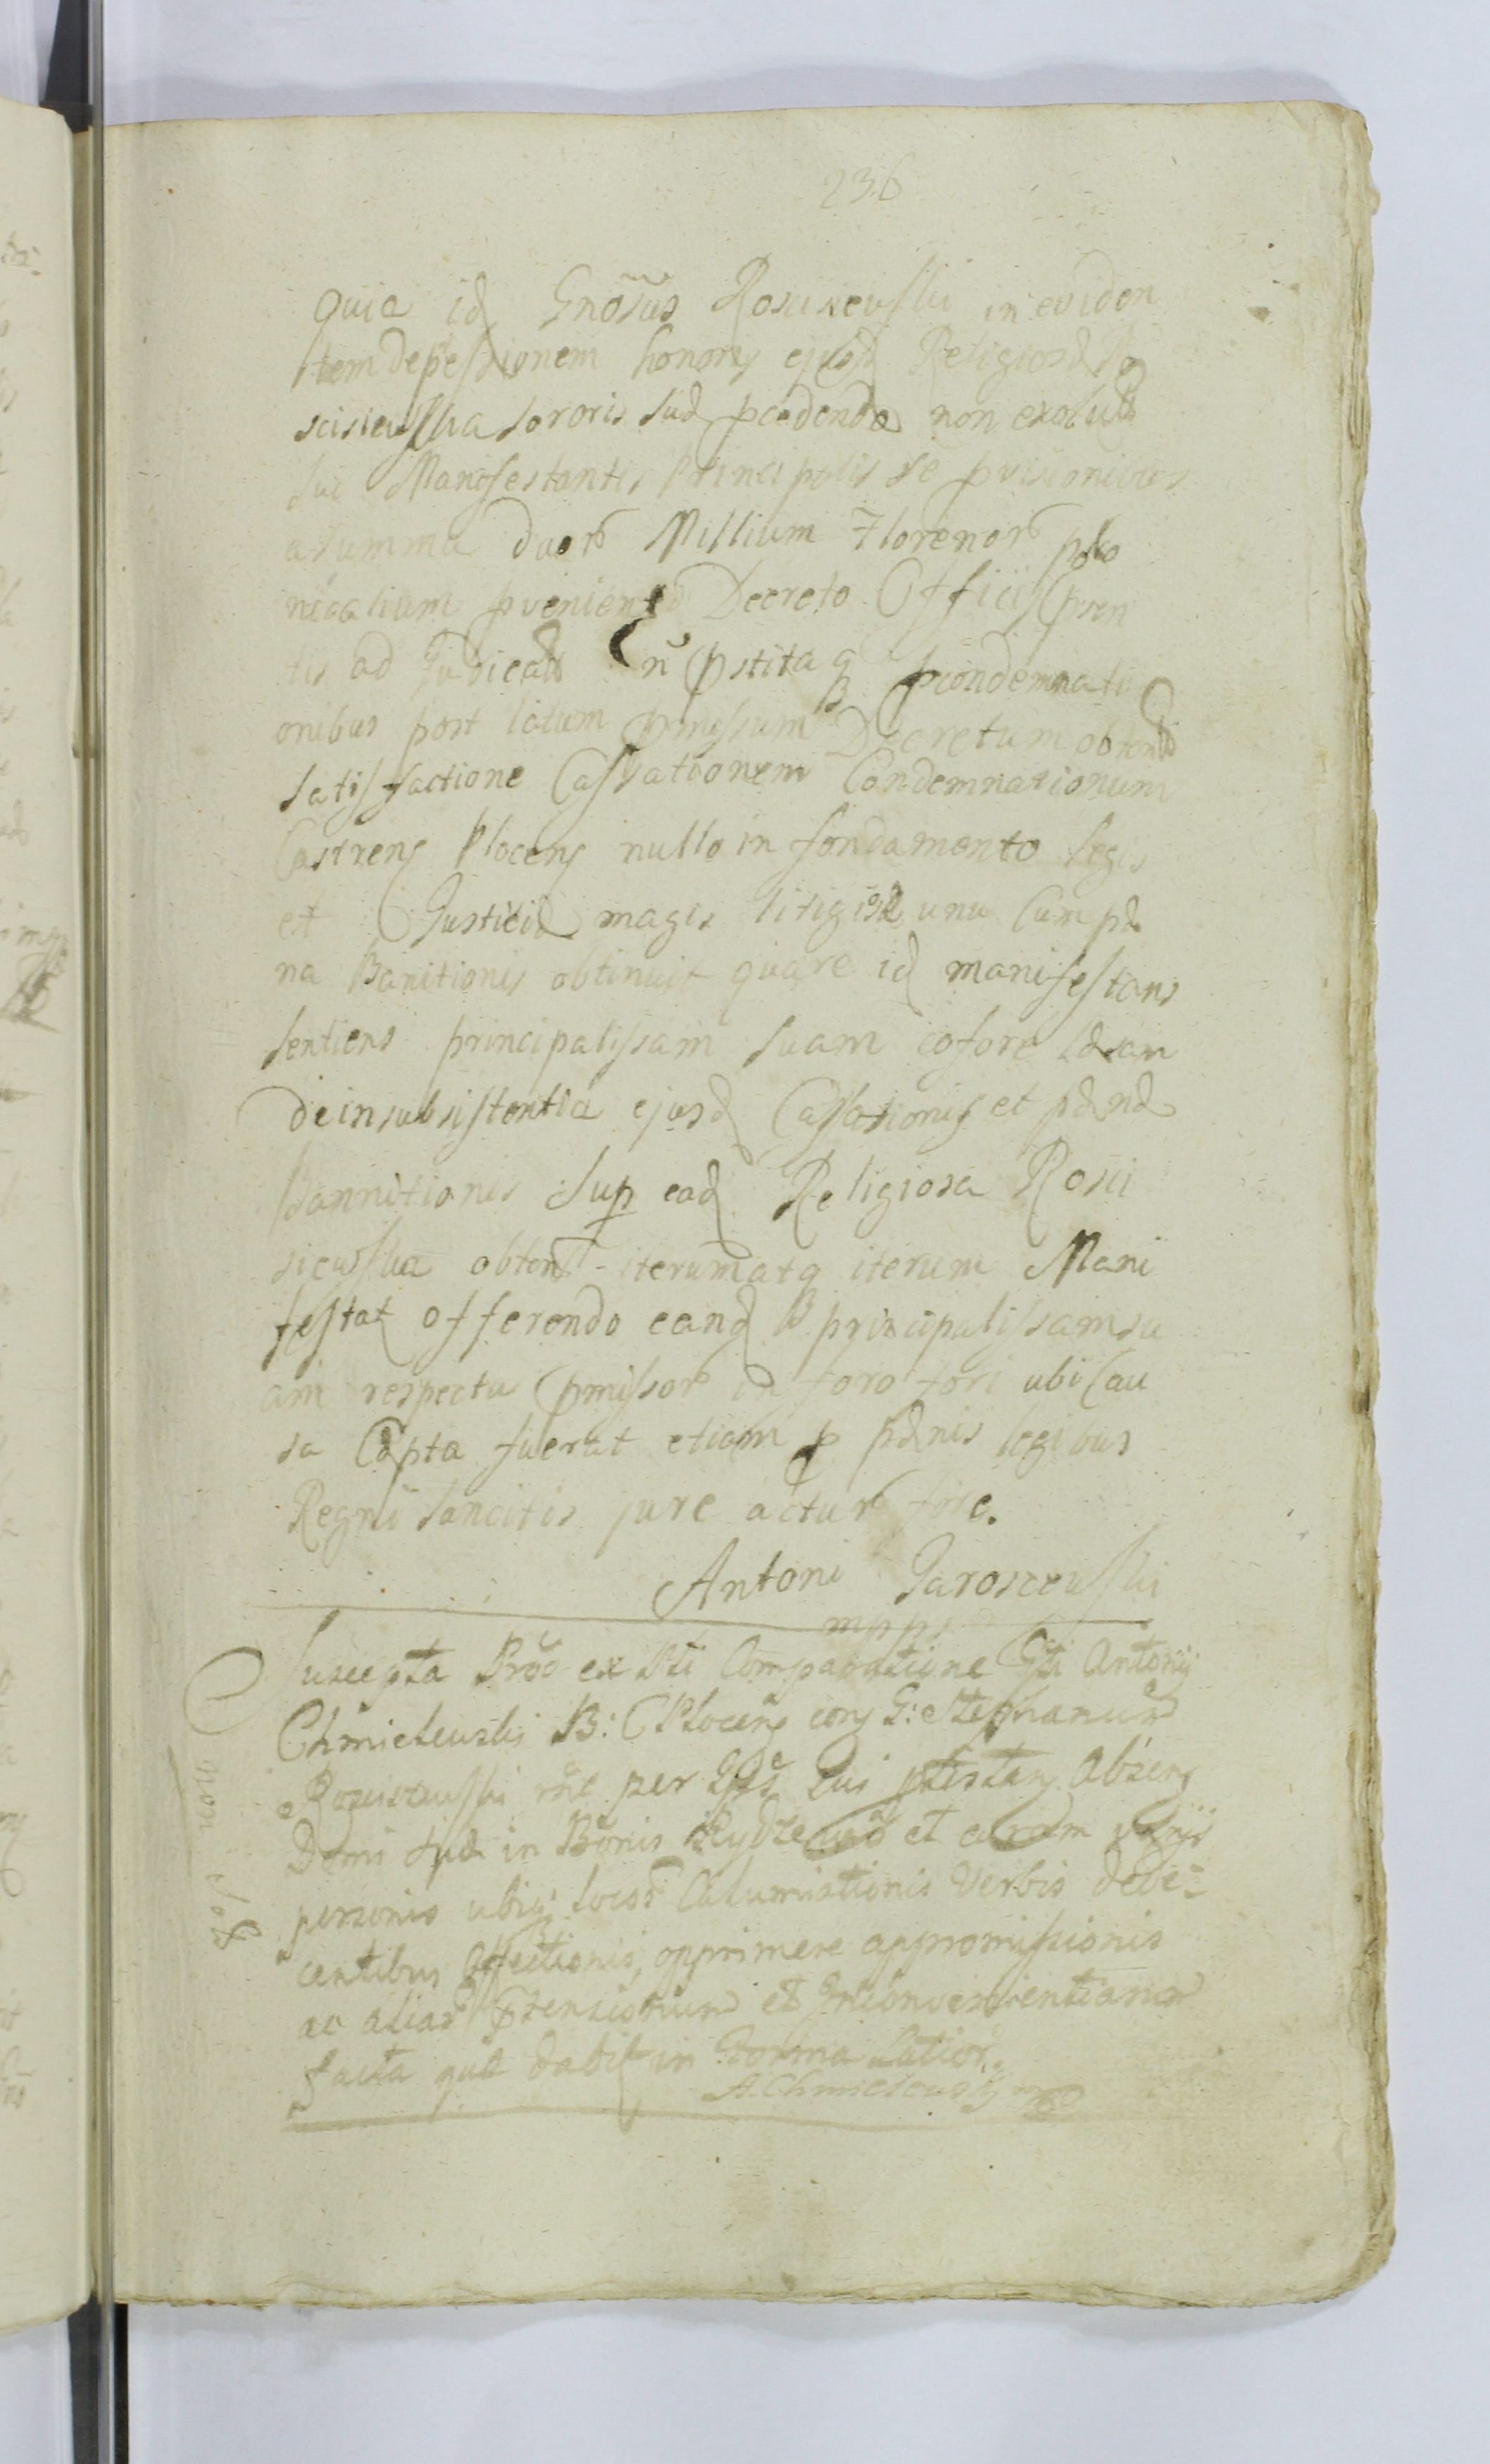 236
quia id Gnosus Rosciszewski in eviden
tem depessionem honoris ejusd Religiosæ Ro
sciszewska sororis suæ pcedendo non exolut
sui Manifestantis Principalis se pvisionibus
a summa duor Millium Florenor polo
nicalium pvenient Decreto Officii Psen
tis ad Judicat n pstita q pcondemnati
onibus post latum Pmissum Decretum obtent
satisfactione Cassationem Condemnationum
Castrens Plocens nullo in fondamento legis
et Justitiæ magis litigiose unu cum pæ
na Banitionis obtinuit quare id manifestans
sentiens principalissam suam eo fore læsam
de insubsistentia ejusd Cassationis et pænæ
Bannitionis sup ead Religiosa Rosci
siewska obtent iterum atq iterum Mani
festat offerendo eand principalissam su
am respectu Pmissor in foro fori ubi Cau
sa Cæpta fuerat etiam p pænis legibus
Regni sancitis jure actur fore.
Antoni Jaroszewski
mpps
Suscepta Proc ex Pti Comparatione Gti Antonij
Chmielewski B: C Plocens cons G: Stephanum
Rosciszewski per Ipsi Qui ptestans Absens
Domi suæ in Bonis Rydzewo et earum varijs
personis ubiq locor Calumiationis Verbis dede-
centibus Affectionis, opprimere appromissionis
ac aliar Ptensionum et Inconvenientiarum
facta quæ dabit in Forma Latior
A. Chmielewski mp
non sol